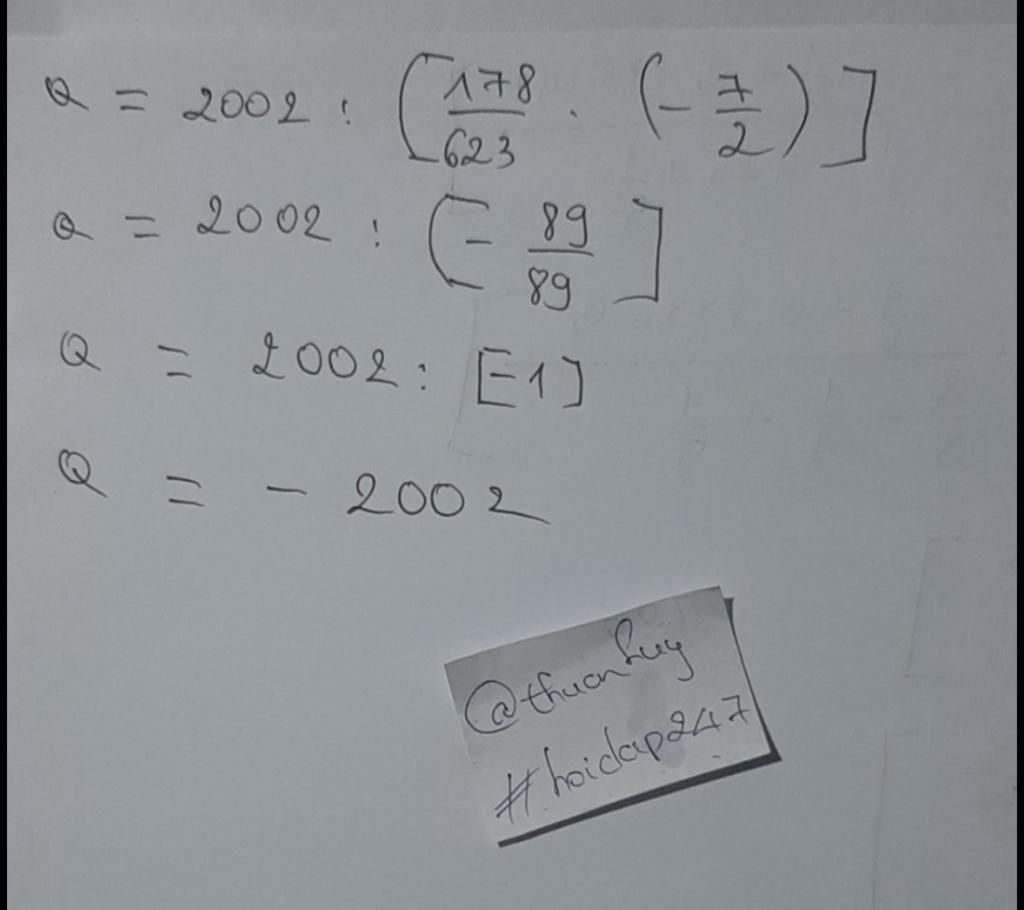 Q = 2002 : [178/623 . (- 7/2)]
Q = 2002 : [- 89/89]
Q = 2002 : [-1]
Q = - 2002
@thuanhuy
#hoidap247